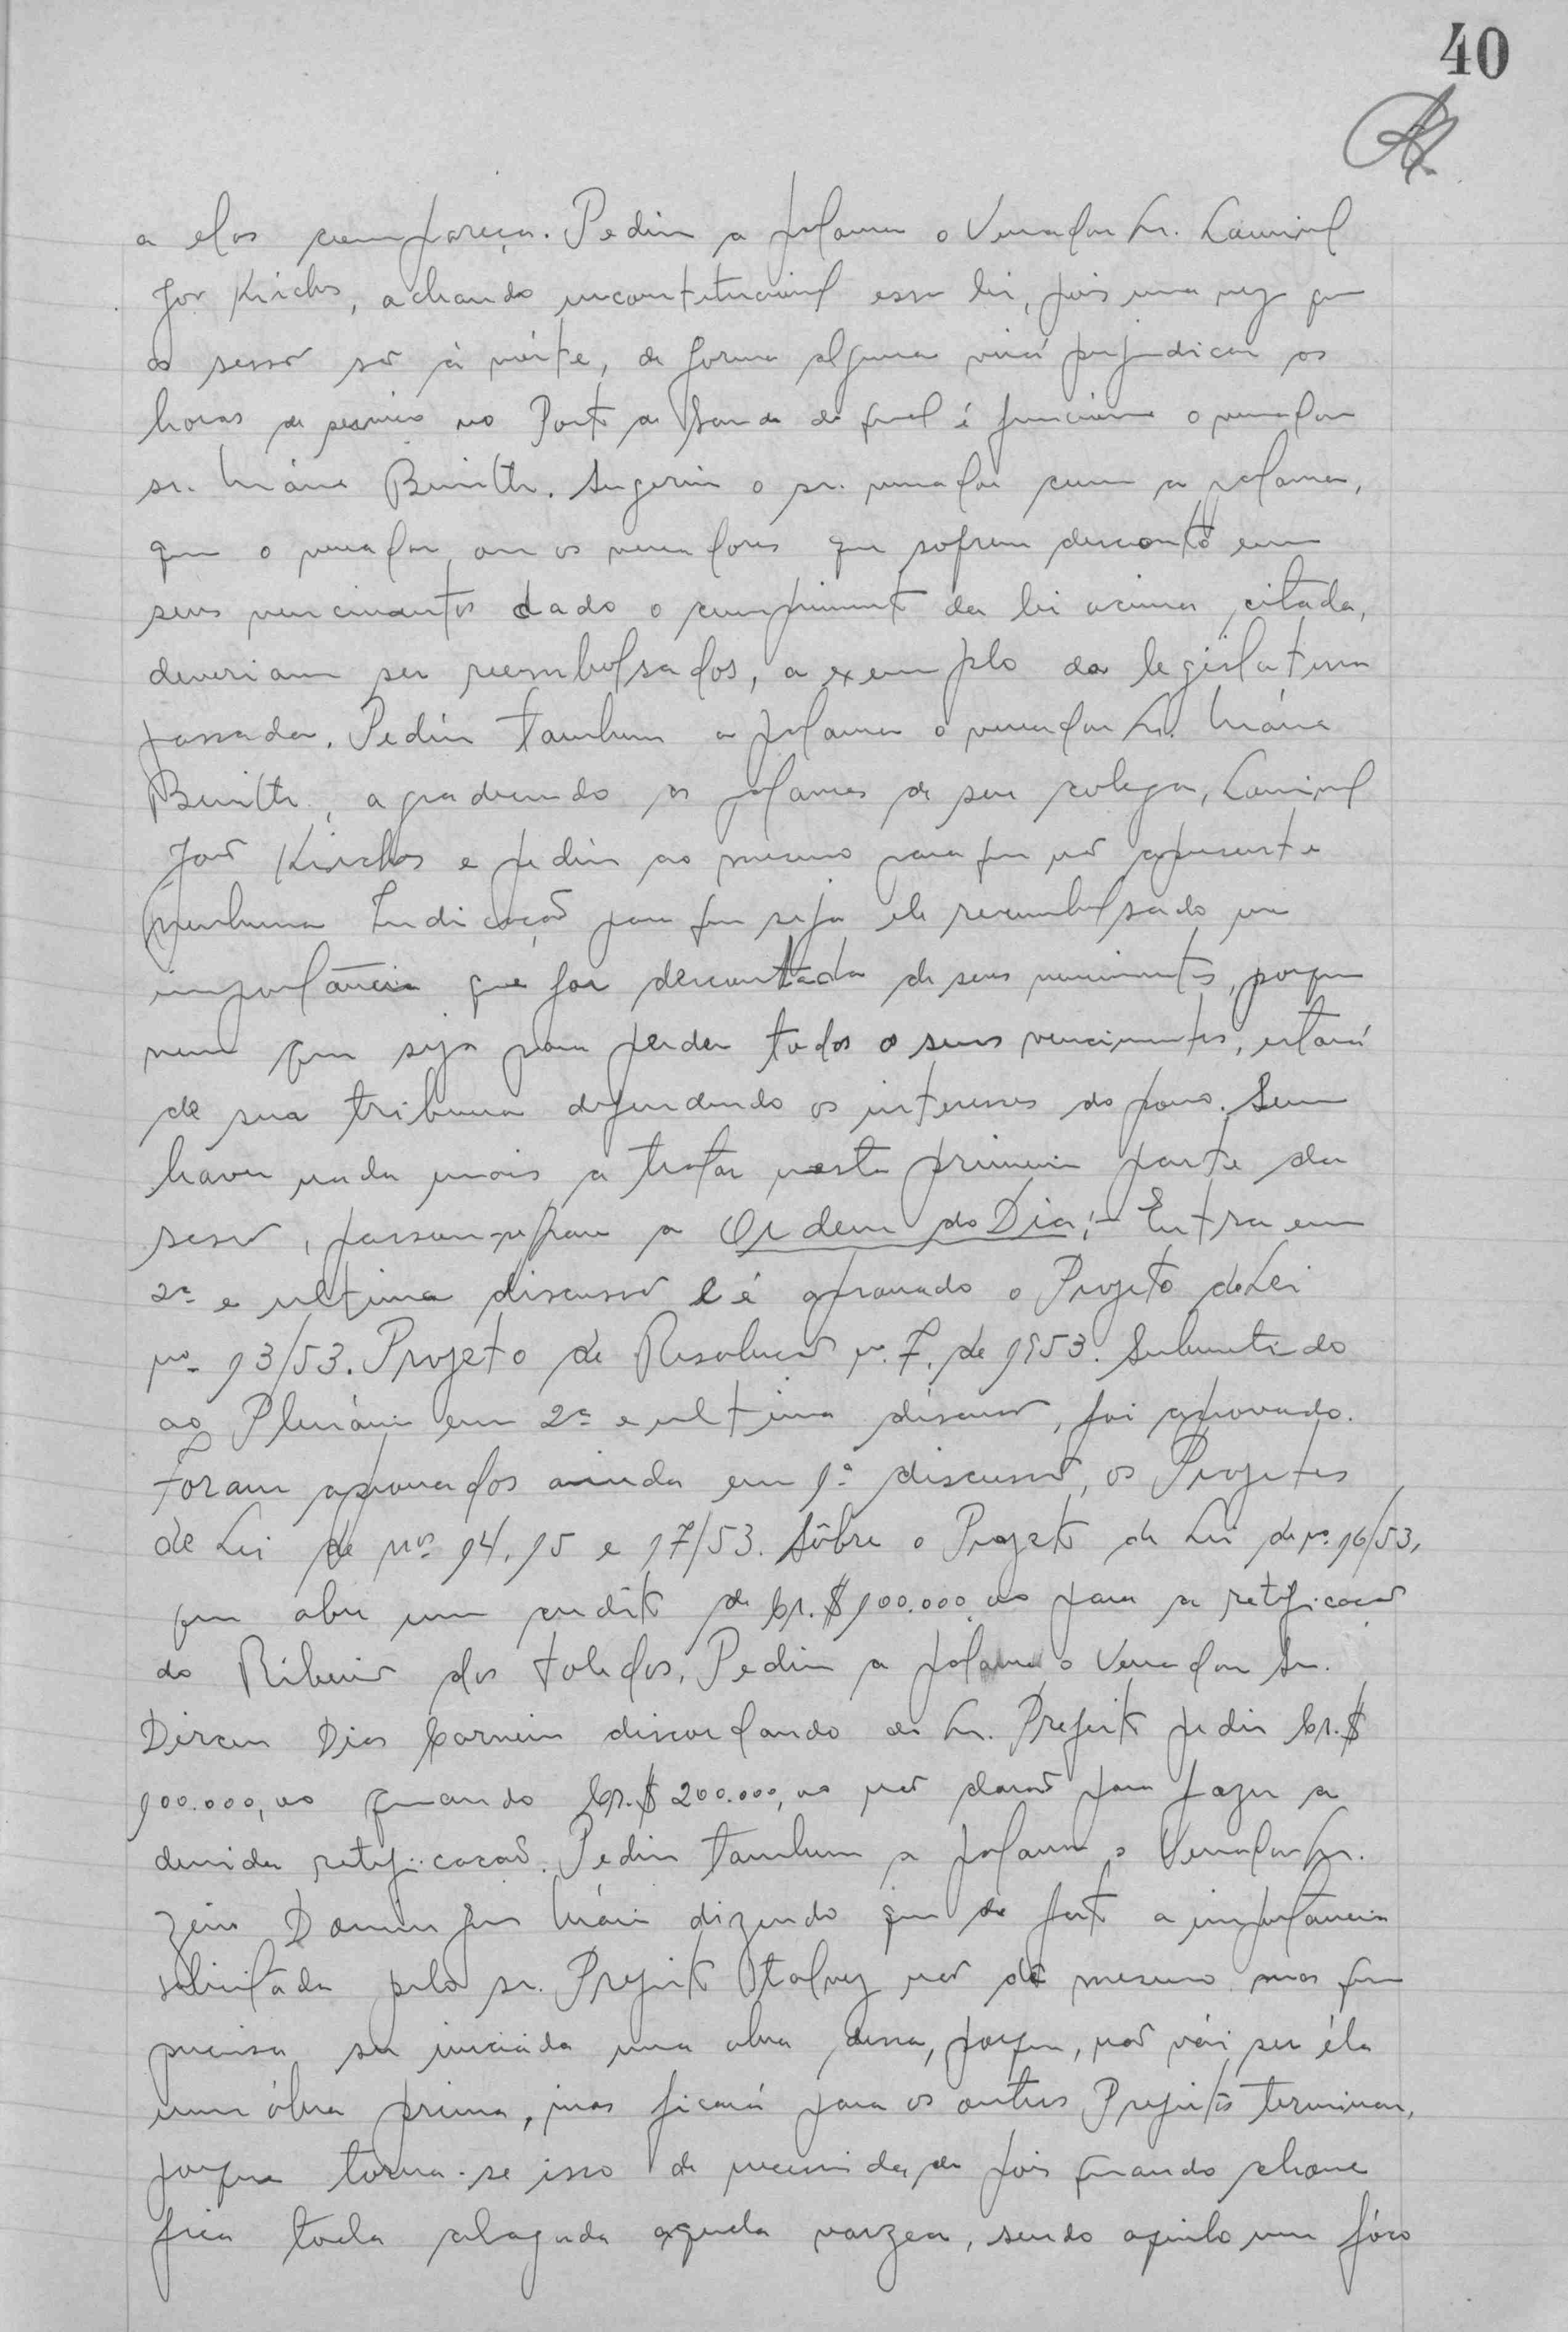 40
a elas compareça. Pediu a palavra o Vereador Sr. Lourival
José Kirchs, achando inconstitucional essa lei, pois uma vez que
as sessões são à noite, de forma alguma virá prejudicar as
horas de serviço no Posto de Saude do qual é funcionario o vereador
sr. Mário Benith. Sugeriu o sr. vereador com a palavra,
que o vereador ou os vereadores que sofrem desconto em
seus vencimentos dado o cumprimento da lei acima citada,
deveriam ser reembolsados, a exemplo da legislatura
passada. Pediu tambem a palavra o vereador Sr. Mário
Benith, agradecendo as palavras de seu colega, Lourival
José Kirchs e pediu ao mesmo para que não apresente
nenhuma Indicação para que seja ele reembolsado na
importância que for descontada de seus vencimentos, porque
nem que seja para perder todos os seus vencimentos, estará
de sua tribuna defendendo os interesses do povo. Sem
haver nada mais a tratar nesta primeira parte da
sessão, passou-se para a Ordem do Dia:- Entra em
2ª e ultima discussão e é aprovado o Projeto de Lei
nº 13/53. Projeto de Resolução nº 7, de 1953. Submetido
ao Plenário em 2ª e ultima discussão, foi aprovado.
Foram aprovados ainda em 1ª discussão, os Projetos
de Lei de nºs 14, 15 e 17/53. Sôbre o Projeto de Lei de nº 16/53,
que abre um credito de Cr.$ 100.000,00 para a retificação
do Ribeirão dos Toledos, Pediu a palavra o Vereador Sr.
Dirceu Dias Carneiro discordando do Sr. Prefeito pedir Cr.$
100.000,00 quando Cr.$ 200.000,00 não darão para fazer a
devida retificação. Pediu tambem a palavra o Vereador Sr.
Zeino Domingues Mário dizendo que de fato a importancia
solicitada pelo sr. Prefeito talvez não dê mesmo mas que
precisa ser iniciada uma obra dessa, porque, não vái ser éla
uma óbra prima, mas ficará para os outros Prefeitos terminar,
porque torna-se isso de necessidade pois quando chove
fica toda alagada aquela varzea, sendo aquilo um fóco